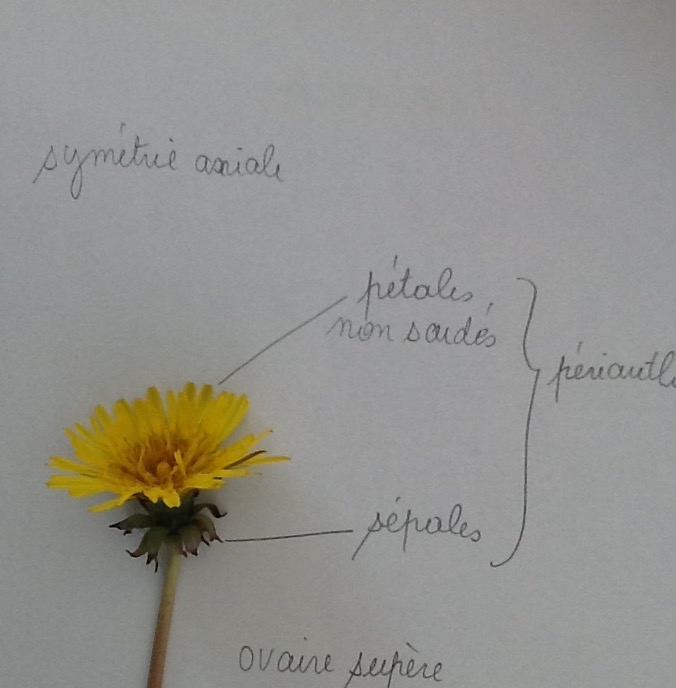 symétrie axiale
pétales,
non soudés
périanth
sépales
ovaire supère